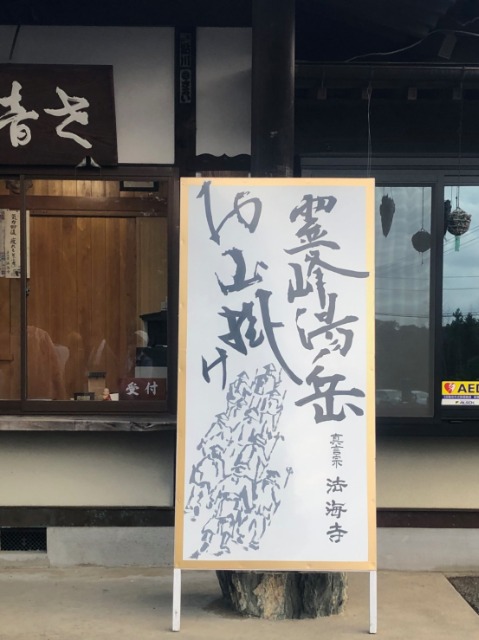 霊峰湯ノ岳
お山掛け
真言宗 法海寺
受付
AED